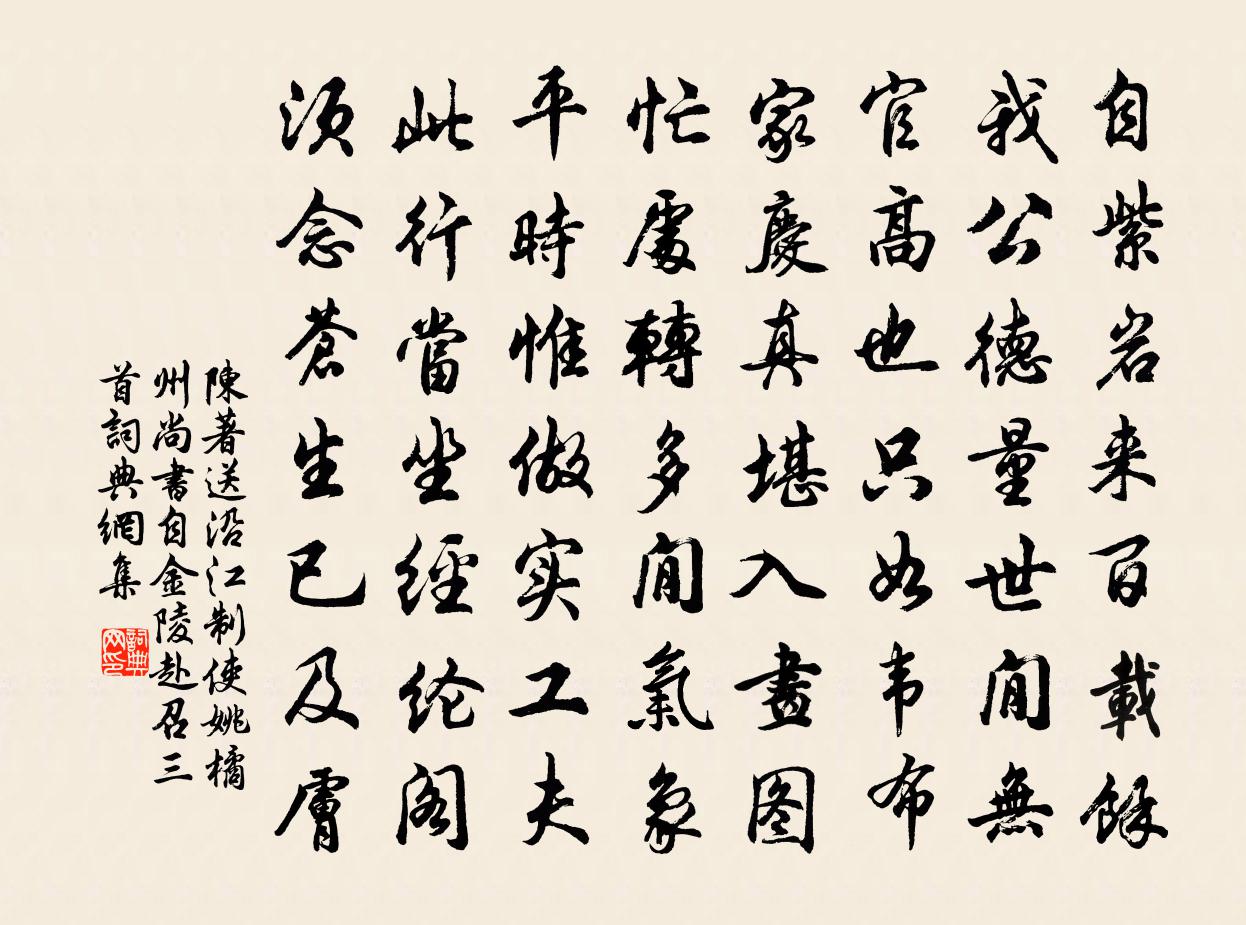 自紫岩来百載餘
我公德量世閒無
官高也只如韦布
家慶真堪入畫图
忙處轉多閒氣象
平時惟做实工夫
此行當坐經纶阁
须念蒼生已及膚
陳著送沿江制使姚橘
州尚書自金陵赴召三
首詞典網集
詞典
网印